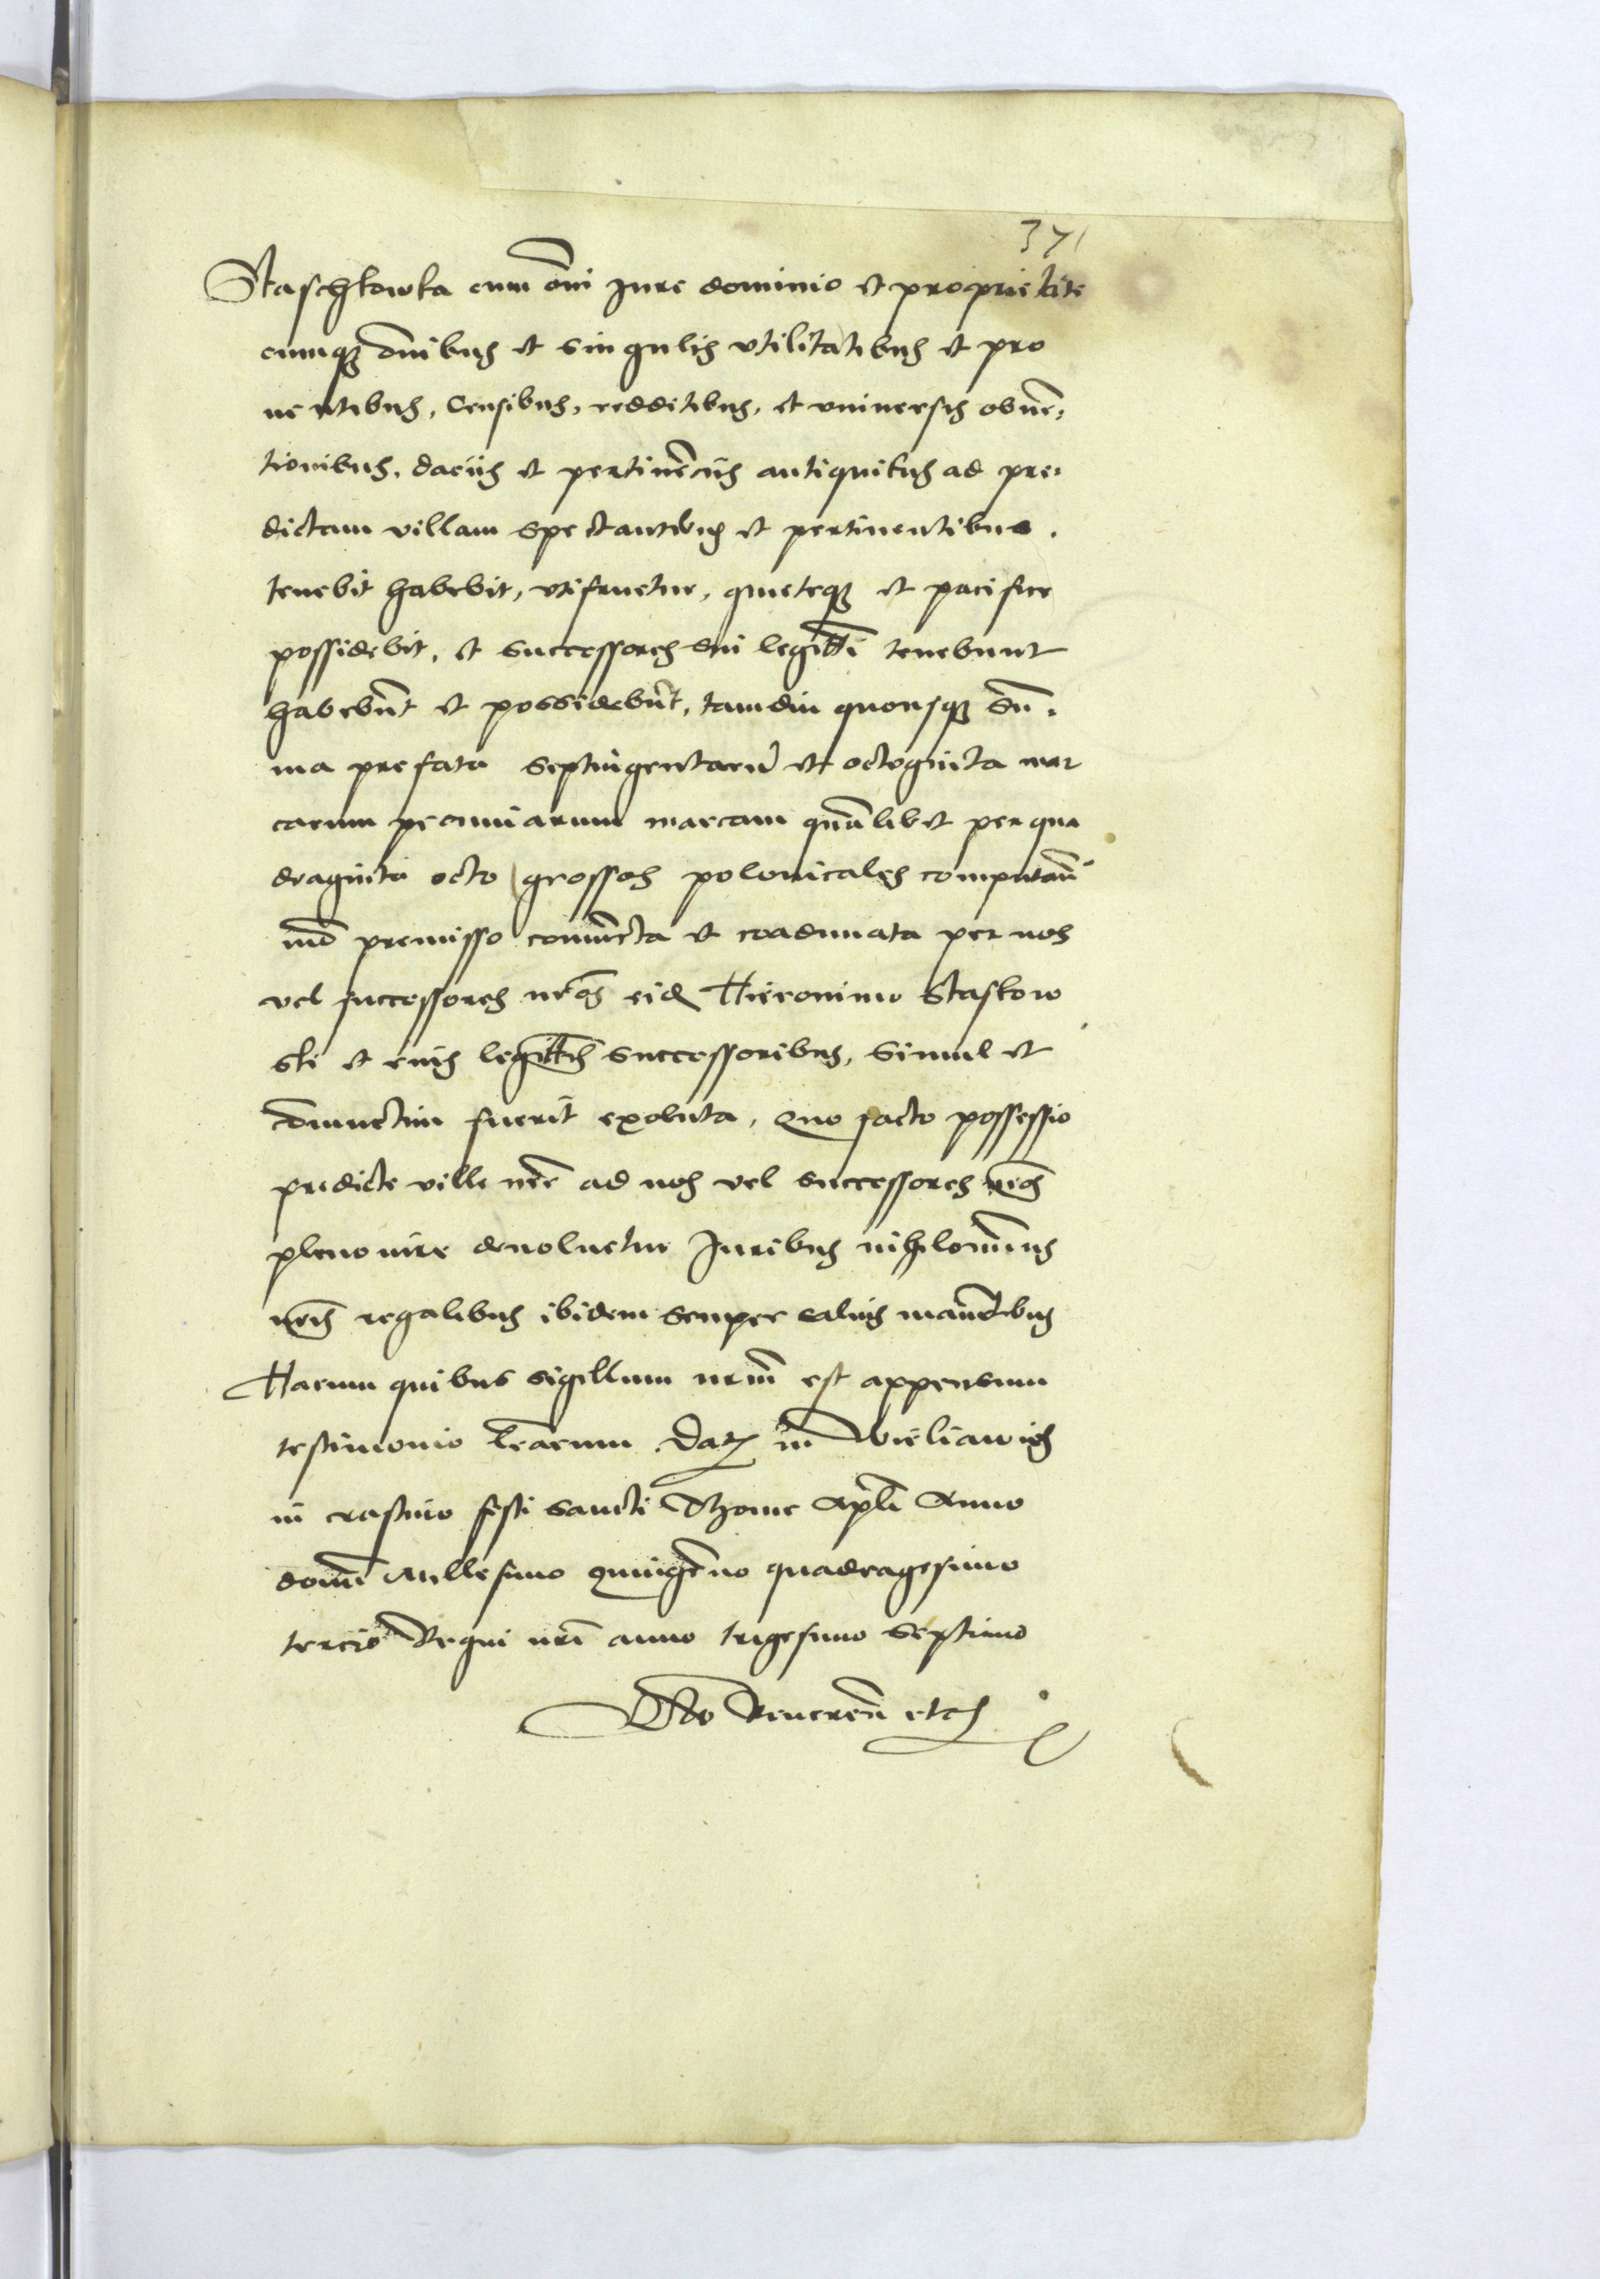 371
Staschkowka cum oi͞ Jure dominio et proprietate
cumqꝫ oi͞bus et singulis vtilitatibus et pro
uentibus, Censibus, redditibus, et vniuersis obuē,
tionibus, daciis et pertinēciis antiquitus ad pre,
dictam villam spectantibus et pertinentibus.
tenebit habebit, vtifruetur, quieteqꝫ et pacifice
possidebit, et successores sui legittī tenebunt
habebūt et possidebūt, tamdiu quousqꝫ sum̄,
ma prefata septuingentarū et octoginta mar
carum pecuniarum marcam quālibet per qua
draginta octo grossos polonicales computan̄
mō premisso coniuncta et coadunata per nos
vel successores nr̄os eid Hieronimo Staskow
ski et eius legittīs successoribus, simul et
coniunctim fuerit exoluta, Quo facto possessio
predicte ville nr̄e ad nos vel successores nr̄os
pleno iure deuoluetur Juribus nihilominus
nr̄is regalibus ibidem semper saluis manentibus
Harum quibus sigillum nrm̄ est appensum
testimonio lr̄arum. Datꝫ in Wieliawies
in crastino festi sancti Thome Apl̄i Anno
domī Millesimo Quingēno quadragesimo
tercio Regni nrī anno trigesimo septimo
Reueren̄ etc